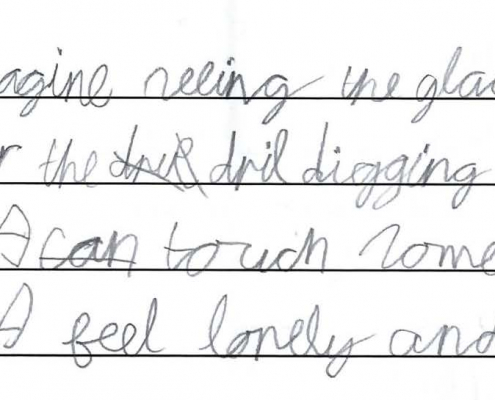 agine seeing the gla
r the dril digging
I can touch some
I feel lonely and